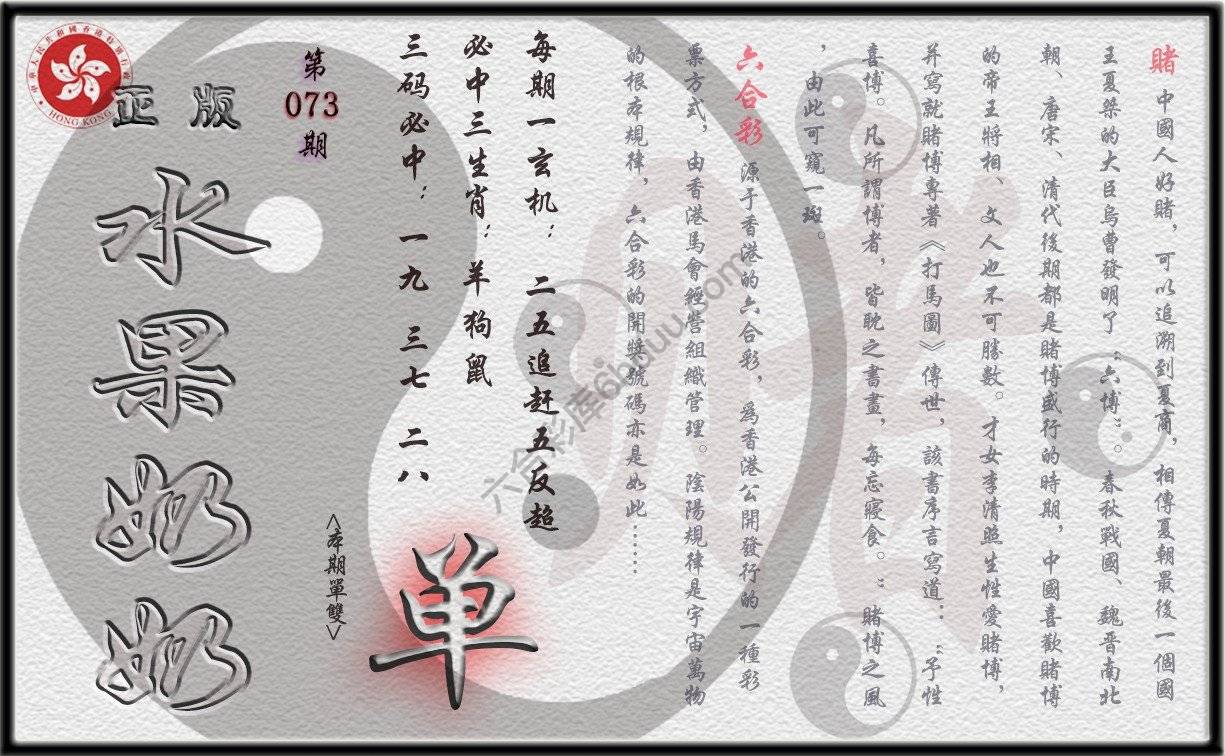 賭 中國人好賭，可以追溯到夏商，相傳夏朝最後一個國
王夏桀的大臣烏曹發明了“六博”。春秋戰國、魏晉南北
朝、唐宋、清代後期都是賭博盛行的時期，中國喜歡賭博
的帝王將相、文人也不可勝數。才女李清照生性愛賭博，
并寫就賭博專著《打馬圖》傳世，該書序言寫道：“予性
喜博。凡所謂博者，皆耽之書晝，每忘寢食。”賭博之風
，由此可窺一斑。
六合彩 源于香港的六合彩，爲香港公開發行的一種彩
票方式，由香港馬會經營組織管理。陰陽規律是宇宙萬物
的根本規律，六合彩的開獎號碼亦是如此……
每期一玄机：二五追赶五反超
必中三生肖：羊狗鼠
三码必中：一九 三七 二八
单
<本期單雙>
第
073
期
正版
水果奶奶
中華人民共和國香港特別行政區
HONG KONG
六合彩库6huuu.com